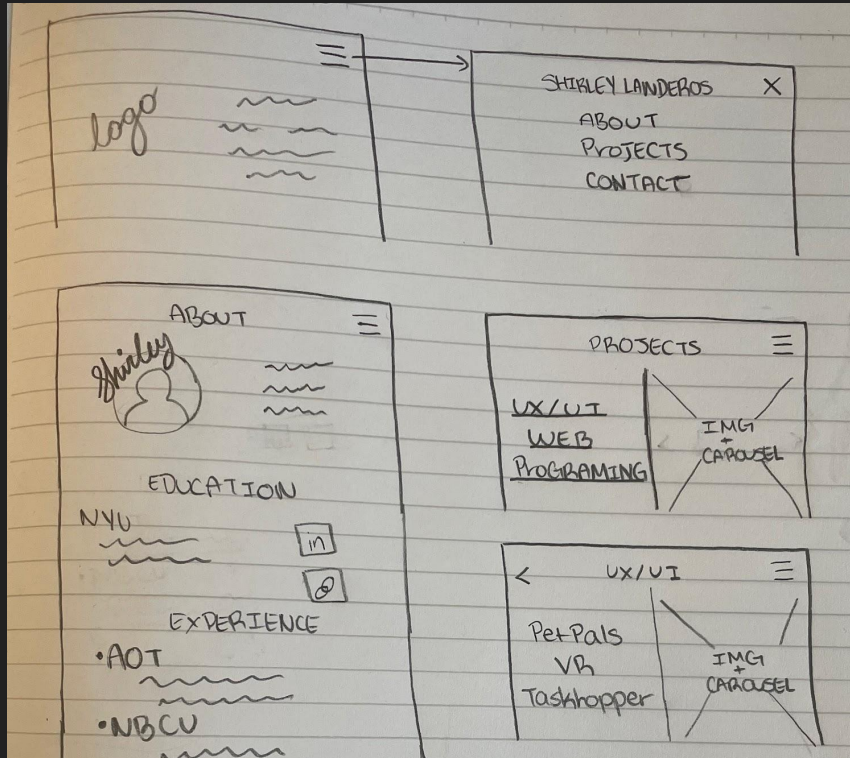 logo
SHIRLEY LANDEROS X
ABOUT
PROJECTS
CONTACT
ABOUT
Shirley
EDUCATION
NYU
in
EXPERIENCE
•AOT
•NBCU
PROJECTS
UX/UI
WEB
PROGRAMING
IMG
+
CAROUSEL
< UX/UI
PetPals
VR
Taskhopper
IMG
+
CAROUSEL